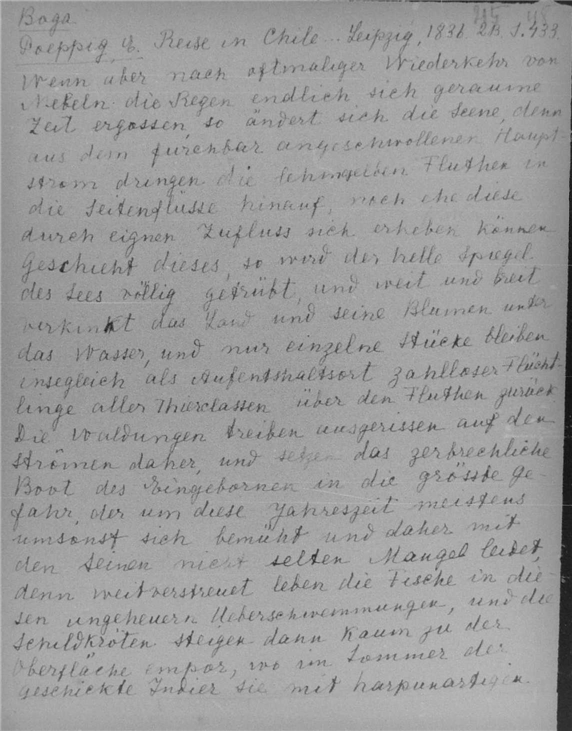 Boga
Poeppig, E. Reise in Chile... Leipzig, 1836 2B S.433
Wenn aber nach oftmaliger Wiederkehr von
Nebeln die Regen endlich sich geraume
Zeit ergossen, so ändert sich die Scene, denn
aus dem furchbar angeschwollenen Haupt-
strom dringen die lehmgelben Fluthen in
die Seitenflüsse hinauf, noch ehe diese
durch eignen Zufluss sich erheben können
Geschieht dieses, so wird der helle Spiegel
des Sees völlig getrübt, und weit und breit
versinkt das Land und seine Blumen unter
das Wasser, und nur einzelne Stücke bleiben
inselgleich als Aufentshaltsort zahlloser Flücht-
linge aller Thierclassen über den Fluthen zurück
Die Waldungen treiben ausgerissen auf den
Strömen daher, und setzen das zerbrechliche
Boot des Eingebornen in die grösste Ge-
fahr, der um diese Jahreszeit meistens
umsonst sich bemüht und daher mit
den Seinen nicht selten Mangel leidet,
denn weitverstreuet leben die Fische in die-
sen ungeheuern Ueberschwemmungen, und die
Schildkröten steigen dann kaum zu der
Oberfläche empor, wo im Sommer der
geschickte Indier sie mit harpunartigen